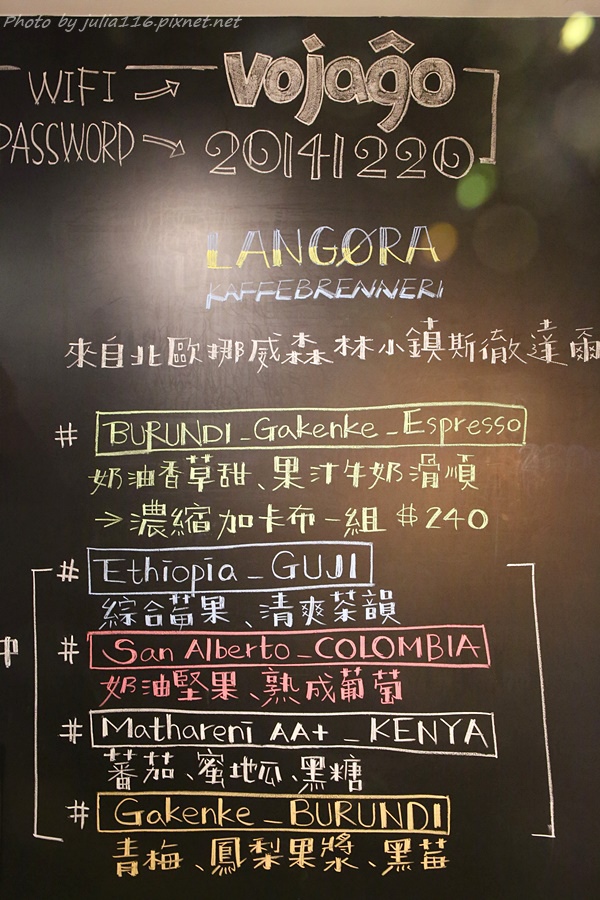 Photo by julia116.pixnet.net
WIFI → vojaĝo
PASSWORD → 20141220
LANGØRA
KAFFEBRENNERI
來自北歐挪威森林小鎮斯徹達爾
# BURUNDI_Gakenke_Espresso
奶油香草甜、果汁牛奶滑順
→濃縮加卡布一組 $240
# Ethiopia_GUJI
綜合莓果、清爽茶韻
# San Alberto_COLOMBIA
奶油堅果、熟成葡萄
# Mathareni AA+_KENYA
蕃茄、蜜地瓜、黑糖
# Gakenke_BURUNDI
青梅、鳳梨果漿、黑莓